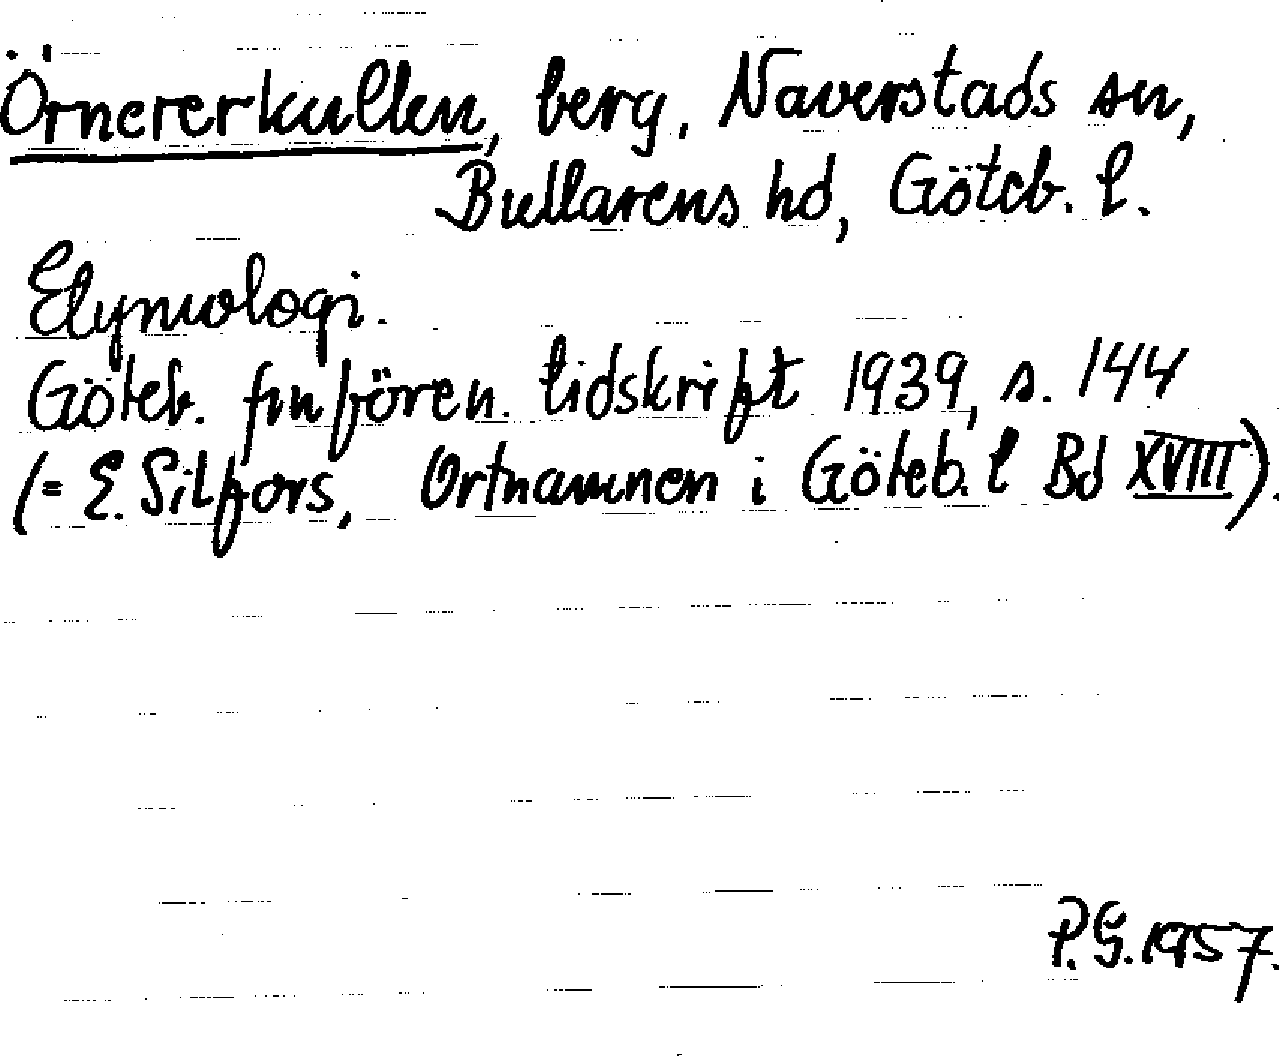 Örnererkullen, berg, Naverstads sn,
Bullarens hd, Göteb. l.
Etymologi.
Göteb. fmfören. tidskrift 1939, s. 144
(= E. Silfors, Ortnamnen i Göteb. l Bd XVIII).
P.G. 1957.